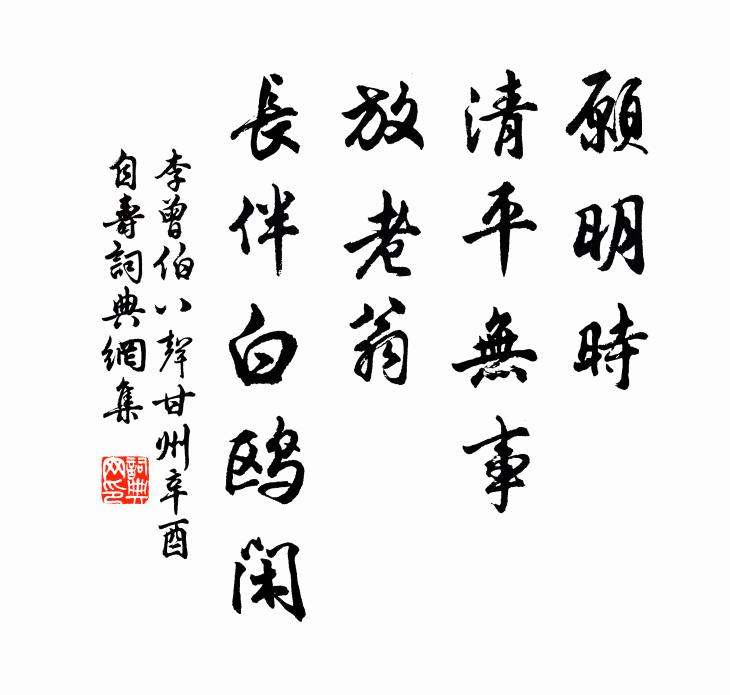 願明時
清平無事
放老翁
長伴白鸥闲
李曾伯八聲甘州辛酉
自壽詞典網集
詞典
网